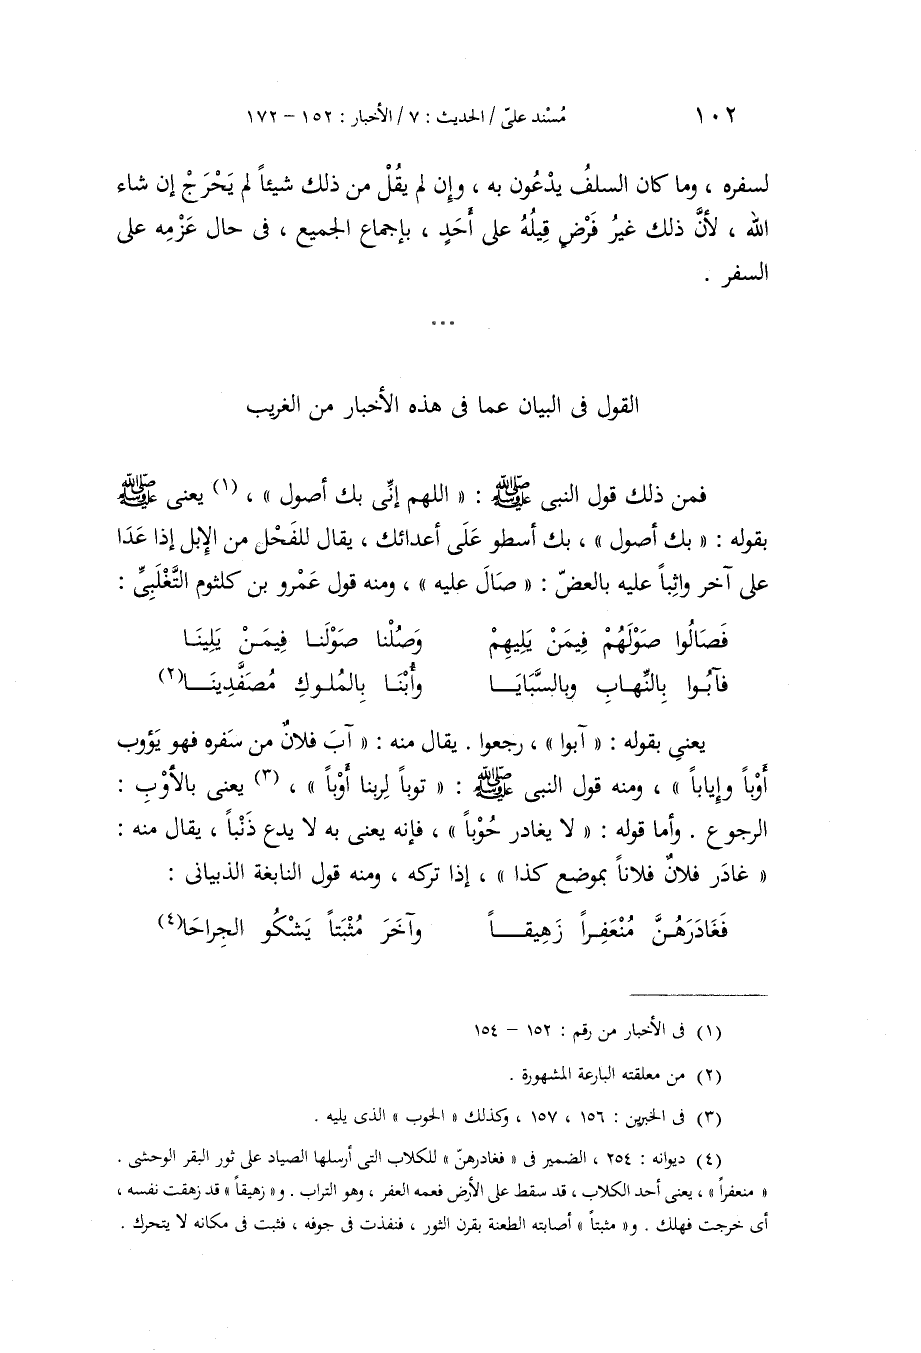 ١٠٢ مُسْند علىّ / الحديث : ٧ / الأخبار : ١٥٢ – ١٧٢
لسفره ، وما كان السلفُ يدْعُون به ، وإن لم يقُلْ من ذلك شيئاً لم يَحْرَجْ إن شاء
الله ، لأنَّ ذلك غيرُ فَرْضٍ قِيلُهُ على أَحَدٍ ، بإجماع الجميع ، فى حال عَزْمِه على
السفر .
...
القول فى البيان عما فى هذه الأخبار من الغريب
فمن ذلك قول النبى ﷺ : « اللهم إنِّى بك أصول » ، (١) يعنى ﷺ
بقوله : « بك أصول » ، بك أسطو عَلَى أعدائك ، يقال للفَحْل من الإبل إذا عَدَا
على آخر واثِباً عليه بالعضّ : « صَالَ عليه » ، ومنه قول عَمْرو بن كلثوم التَّغْلَبِىِّ :
فَصَالُوا صَوْلَهُمْ فِيمَنْ يَلِيهِمْ وَصُلْنا صَوْلَنـا فِيمَـنْ يَلِينَـا
فآبُـوا بِالنِّهـابِ وبالسَّبَايَـــا وأُبْنَـا بِالمُلـوكِ مُصَفَّدِينَـــا(٢)
يعنى بقوله : « آبوا » ، رجعوا . يقال منه : « آبَ فلانٌ من سَفره فهو يَؤوب
أَوْباً وإياباً » ، ومنه قول النبى ﷺ : « توباً لِربنا أَوْباً » ، (٣) يعنى بالأوْبِ :
الرجوع . وأما قوله : « لا يغادر حُوْباً » ، فإنه يعنى به لا يدع ذَنْباً ، يقال منه :
« غادَر فلانٌ فلاناً بموضع كذا » ، إذا تركه ، ومنه قول النابغة الذبيانى :
فَغَادَرَهُـنَّ مُنْعَفِـراً زَهِيقـــــاً وآخَرَ مُثْبَتاً يَشْكُو الجِراحَا(٤)
(١) فى الأخبار من رقم : ١٥٢ – ١٥٤
(٢) من معلقته البارعة المشهورة .
(٣) فى الخبرين : ١٥٦ ، ١٥٧ ، وكذلك « الحوب » الذى يليه .
(٤) ديوانه : ٢٥٤ ، الضمير فى « فغادرهنّ » للكلاب التى أرسلها الصياد على ثور البقر الوحشى .
« منعفراً » ، يعنى أحد الكلاب ، قد سقط على الأرض فعمه العفر ، وهو التراب . و« زهيقاً » قد زهقت نفسه ،
أى خرجت فهلك . و« مثبتاً » أصابته الطعنة بقرن الثور ، فنفذت فى جوفه ، فثبت فى مكانه لا يتحرك .